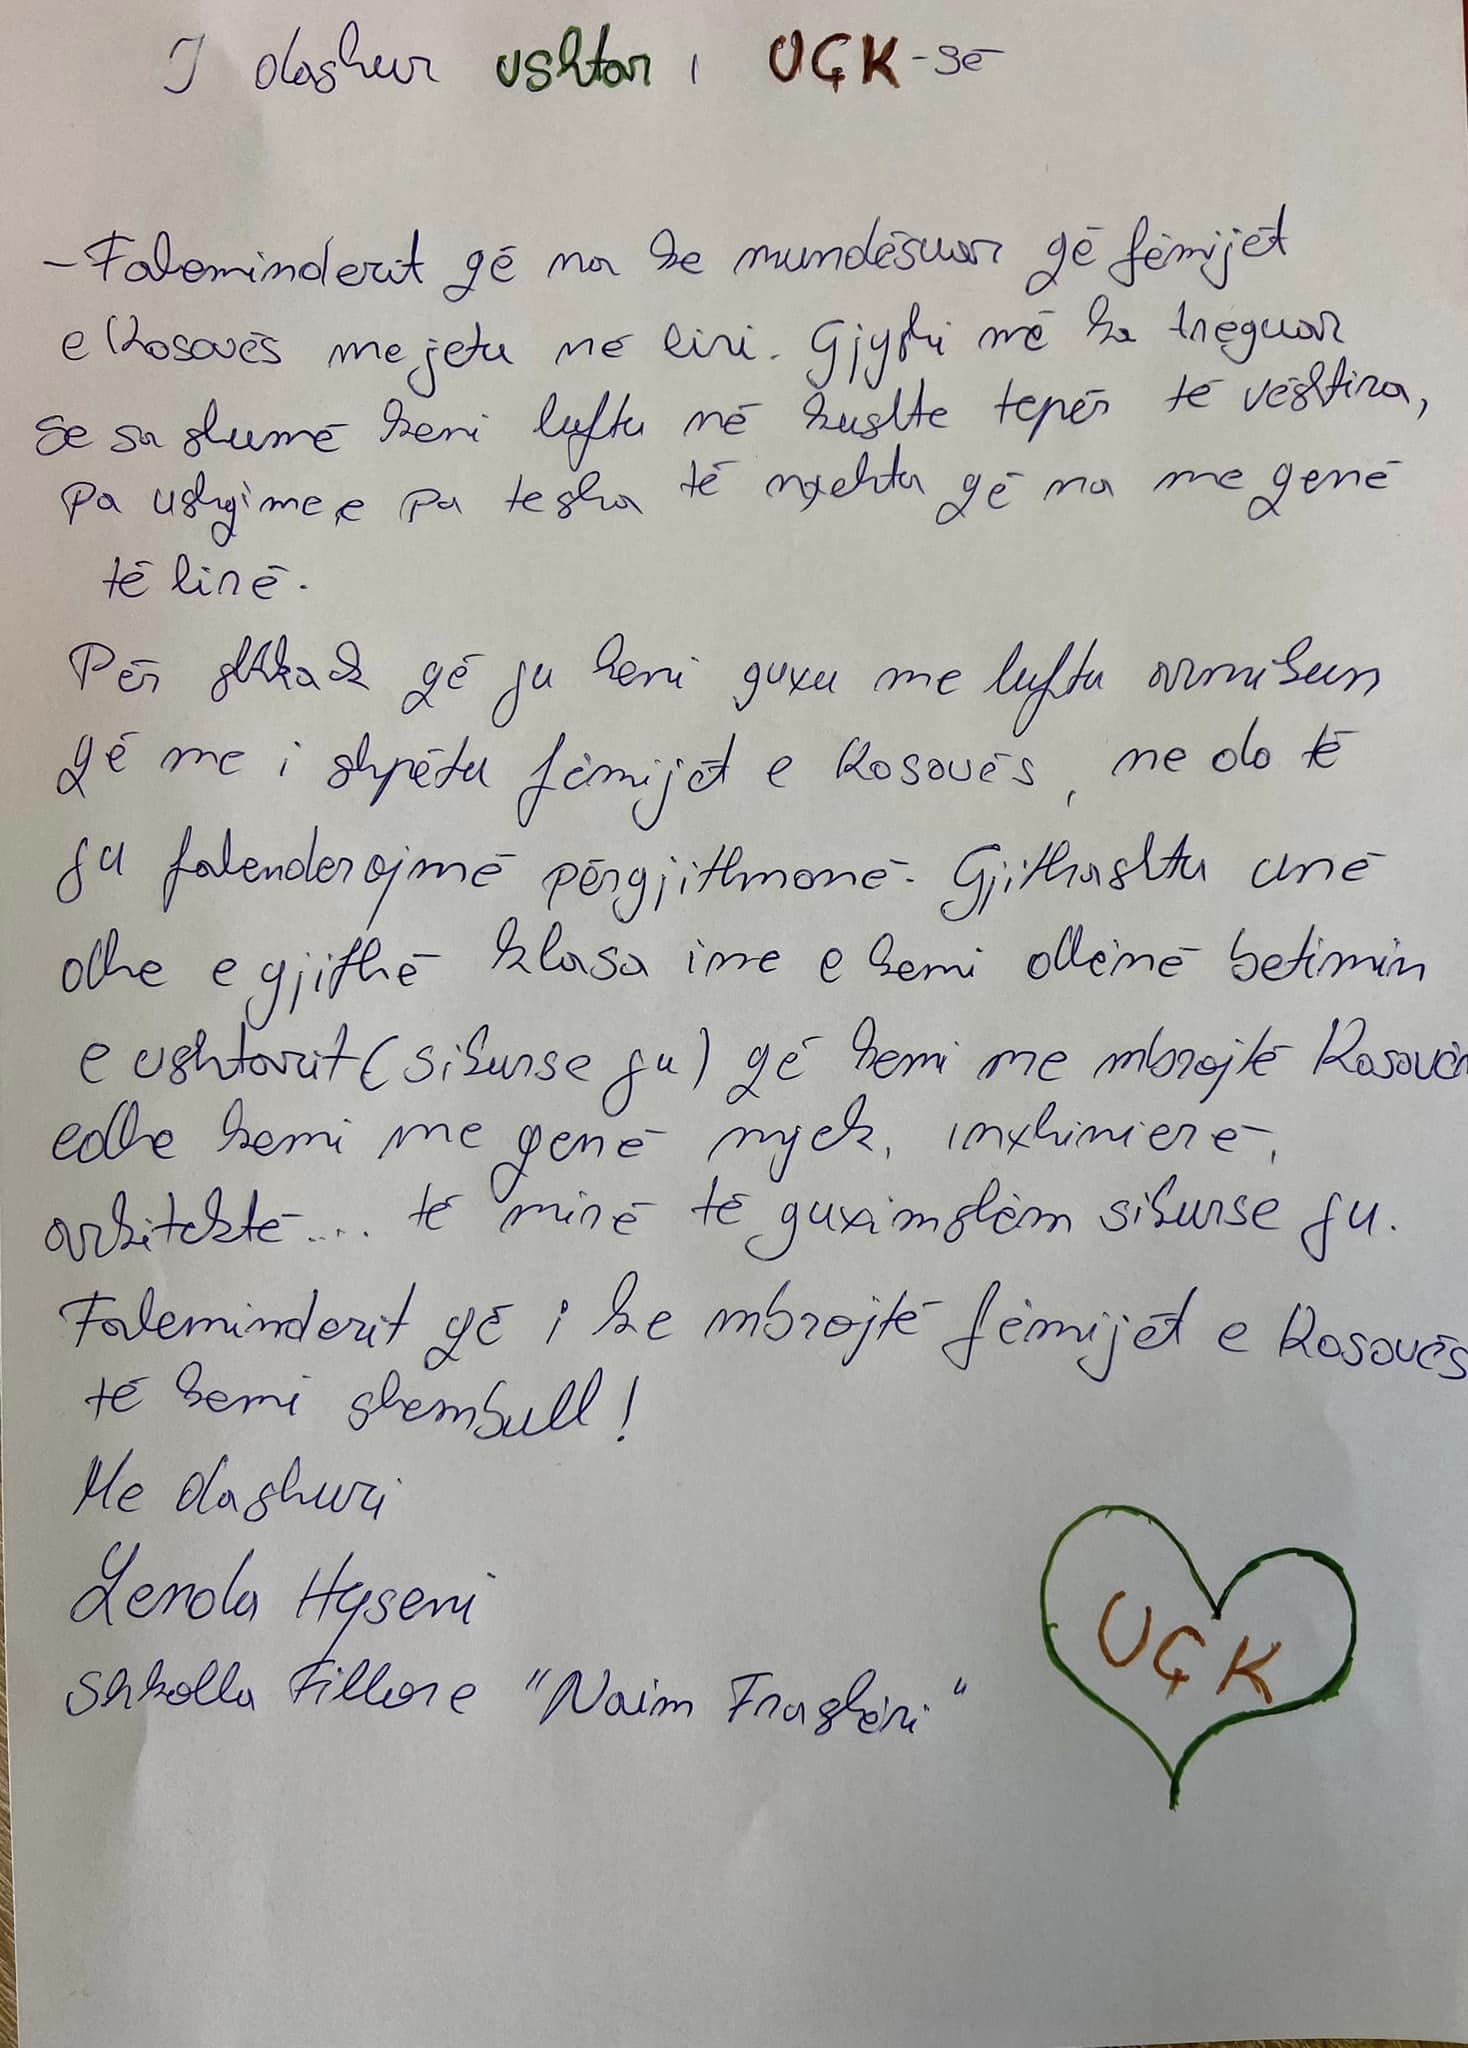 I dashur ushtar i UÇK-së
- Faleminderit që na ke mundësuar që fëmijët
e Kosovës me jetu në liri. Gjyshi më ka treguar
se sa shumë keni luftu në kushte tepër të vështira,
pa ushqime, e pa tesha të nxehta që na me qenë
të lirë.
Për shkak që ju keni guxu me luftu armikun
që me i shpëtu fëmijët e Kosovës, ne do të
ju falenderojmë përgjithmonë. Gjithashtu unë
dhe e gjithë klasa ime e kemi dhënë betimin
e ushtarit (sikurse ju) që kemi me mbrojtë Kosovën
edhe kemi me qenë mjek, inxhinierë,
arkitektë.... të mirë të guximshëm sikurse ju.
Faleminderit që i ke mbrojtë fëmijët e Kosovës
të kemi shembull!
Me dashuri
Lenda Hyseni
Shkolla Fillore "Naim Frashëri"
UÇK